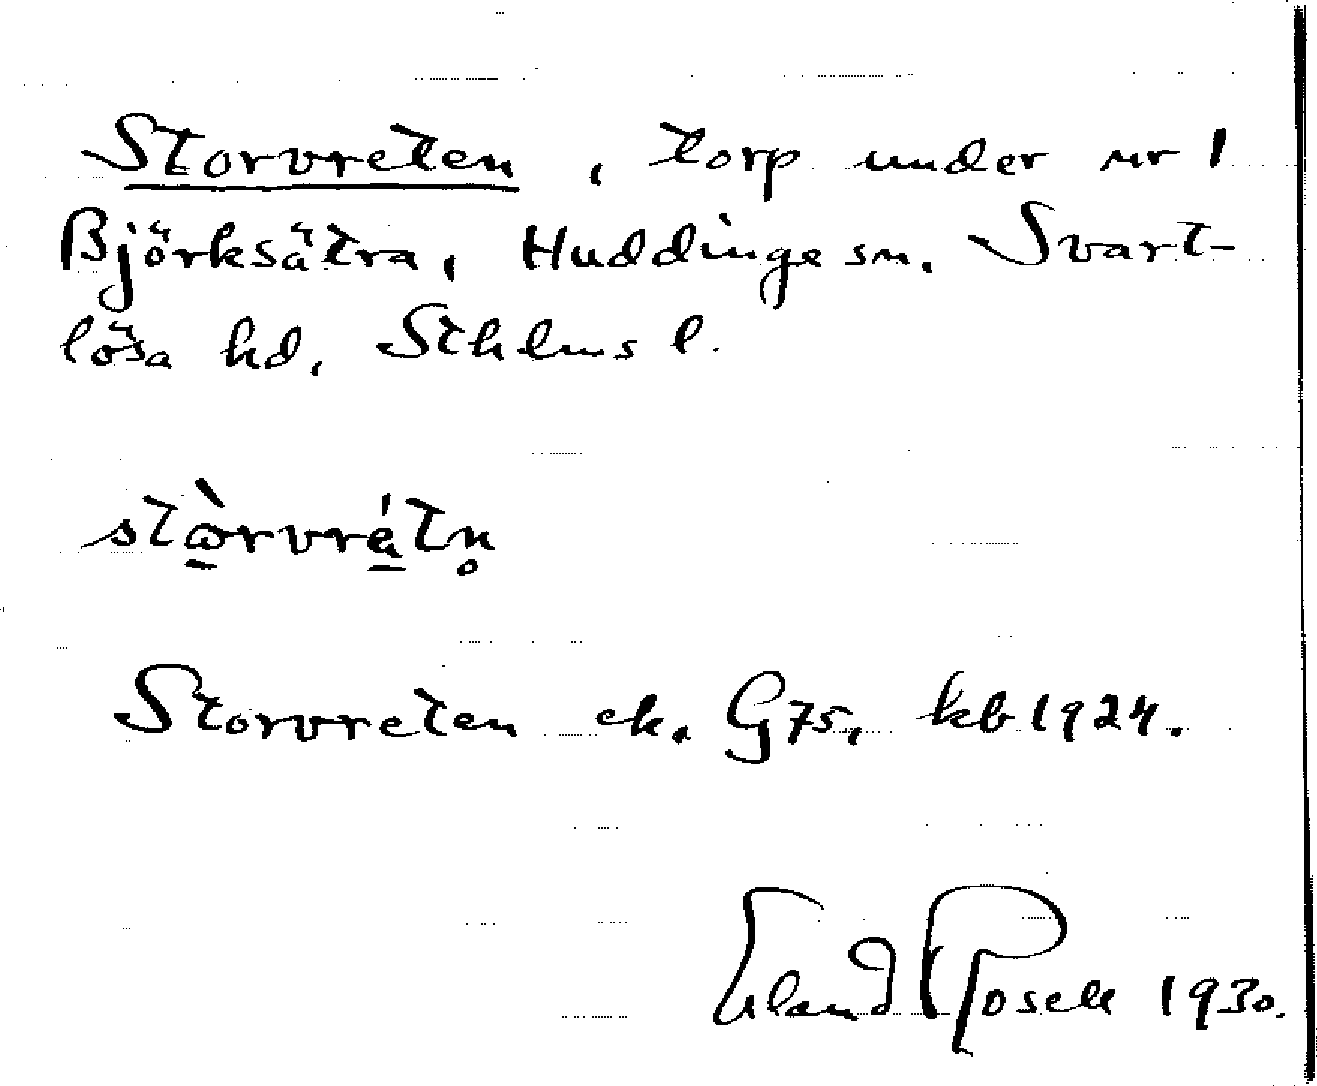 Storvreten, torp under nr 1
Björksätra, Huddinge sn. Svart-
lösa hd, Sthlms l.
stòrvrátn̥
Storvreten ek. G75, kb 1924.
Erland Rosell 1930.